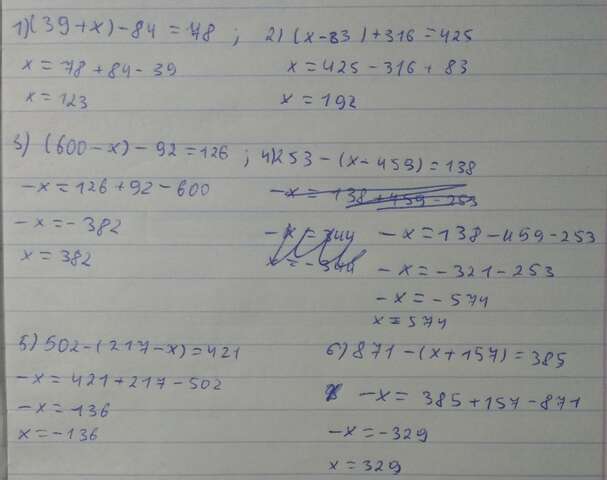 1) (39+x)-84=78 ; 2) (x-83)+316=425
x=78+84-39 x=425-316+83
x=123 x=192
3) (600-x)-92=126 ; 4) 253-(x-459)=138
-x=126+92-600 -x=138+459-253
-x=-382 -x=344 -x=138-459-253
x=382 x=-344 -x=-321-253
-x=-574
x=574
5) 502-(217-x)=421 6) 871-(x+157)=385
-x=421+217-502 -x=385+157-871
-x=136 -x=-329
x=-136 x=329